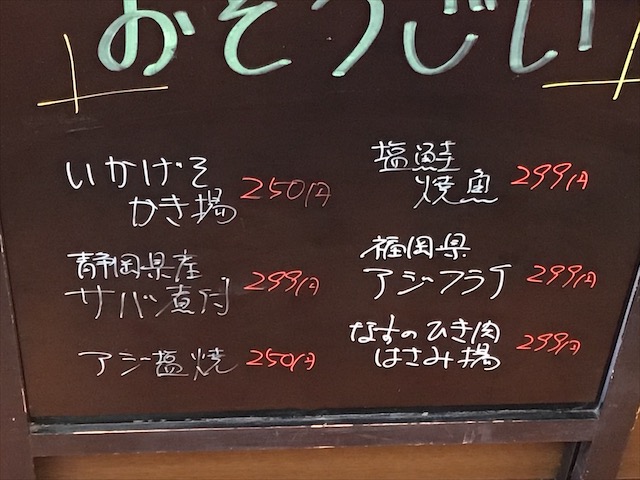 おそうじい
いかげそ
かき揚 250円
静岡県産
サバ煮付 299円
アジ塩焼 250円
塩鮭
焼魚 299円
福岡県
アジフライ 299円
なすのひき肉
はさみ揚 299円